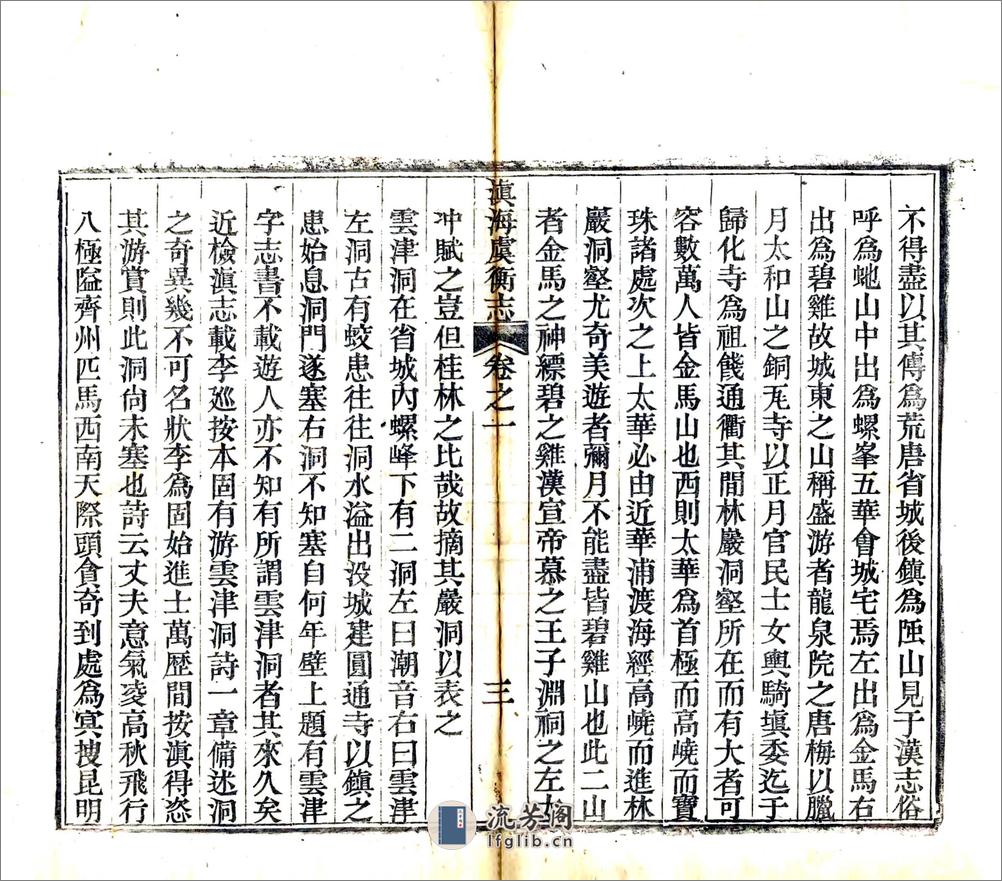 不得盡以其傳爲荒唐省城後鎮爲䖤山見于漢志俗
呼爲虵山中出爲螺峯五華會城宅焉左出爲金馬右
出爲碧雞故城東之山稱盛游者龍泉院之唐梅以臘
月太和山之銅瓦寺以正月官民士女輿騎塡委迄于
歸化寺爲祖餞通衢其閒林巖洞壑所在而有大者可
容數萬人皆金馬山也西則太華爲首極而高嶢而寶
珠諸處次之上太華必由近華浦渡海經高嶢而進林
巖洞壑尤奇美遊者彌月不能盡皆碧雞山也此二山
者金馬之神縹碧之雞漢宣帝慕之王子淵祠之左太
滇海虞衡志 卷之一 三
冲賦之豈但桂林之比哉故摘其巖洞以表之
雲津洞在省城內螺峰下有二洞左曰潮音右曰雲津
左洞古有蛟患往往洞水溢出没城建圓通寺以鎮之
患始息洞門遂塞右洞不知塞自何年壁上題有雲津
字志書不載遊人亦不知有所謂雲津洞者其來久矣
近檢滇志載李巡按本固有游雲津洞詩一章備述洞
之奇異幾不可名狀李爲固始進士萬歷間按滇得恣
其游賞則此洞尙未塞也詩云丈夫意氣夌高秋飛行
八極隘齊州匹馬西南天際頭貪奇到處爲冥搜昆明
流芳阁
lfglib.cn